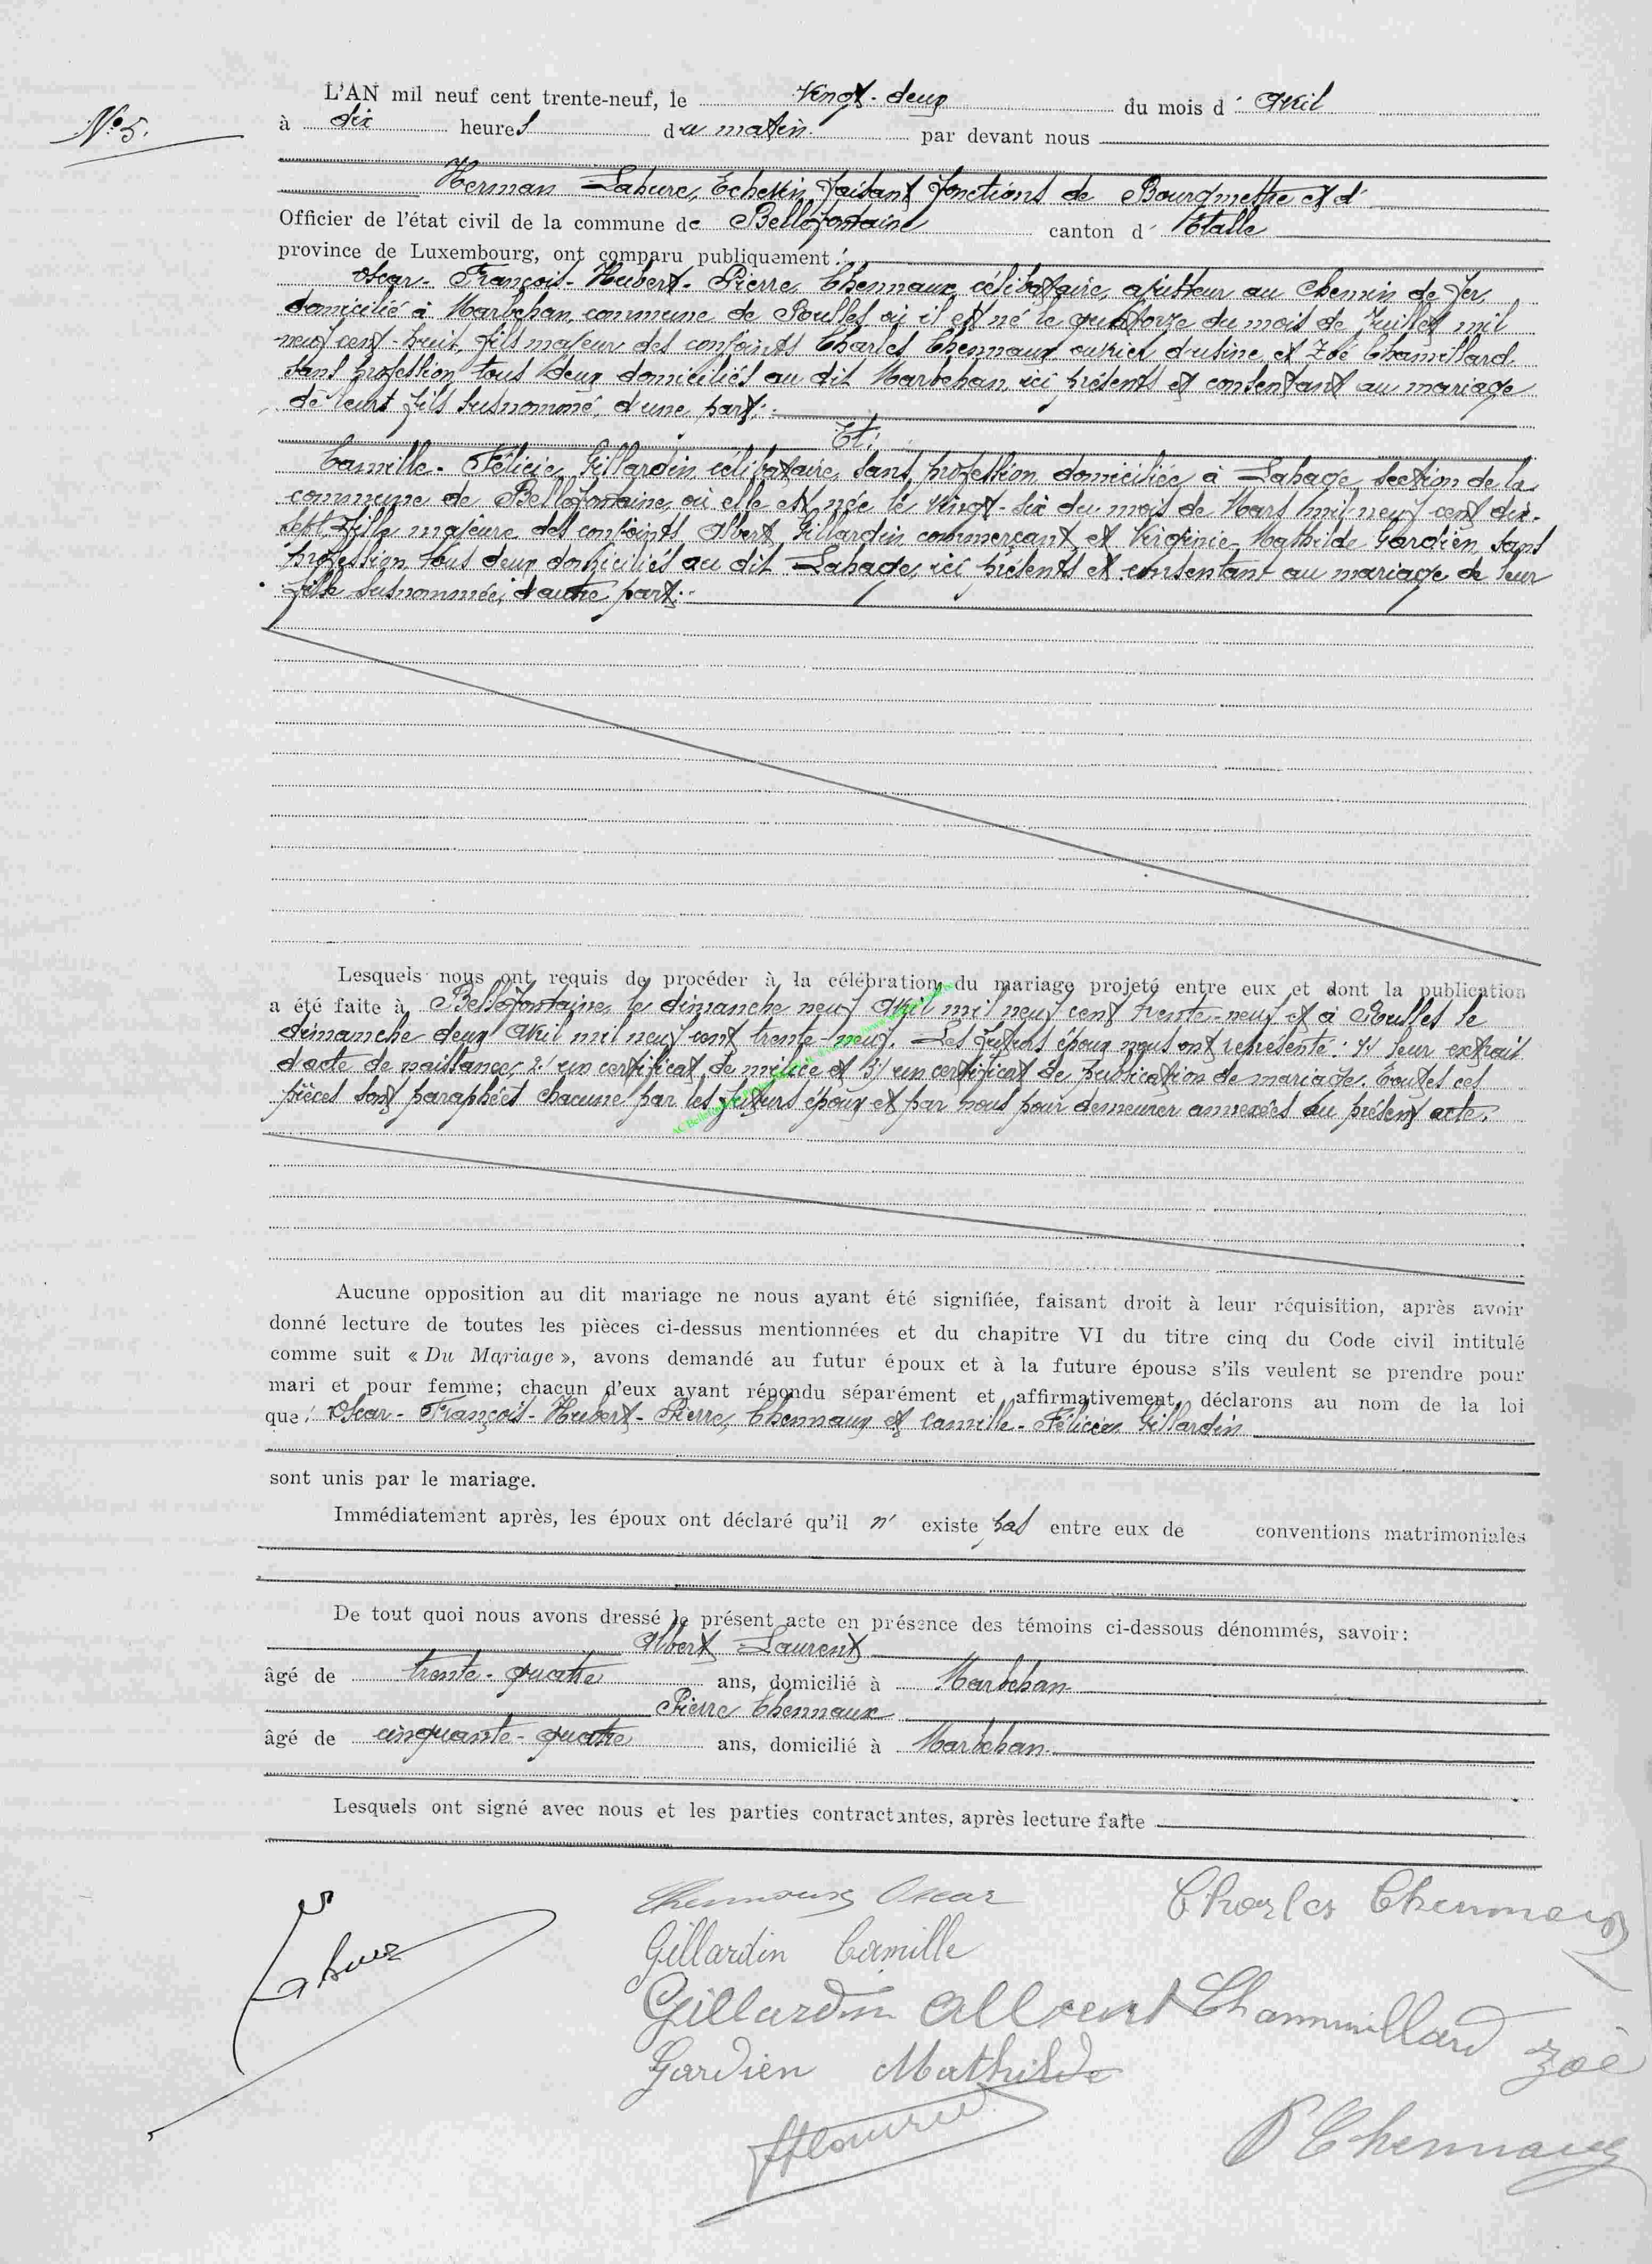 N° 5.
L'AN mil neuf cent trente-neuf, le vingt-deux du mois d' Avril
à dix heures du matin par devant nous
Herman Lahure, Echevin faisant fonctions de Bourgmestre et d'
Officier de l'état civil de la commune de Bellefontaine canton d' Etalle
province de Luxembourg, ont comparu publiquement :
Oscar-François-Hubert-Pierre Chennaux, célibataire, ajusteur au Chemin de Fer,
domicilié à Marbehan, commune de Roulles où il est né le quatorze du mois de Juillet mil
neuf cent-huit, fils majeur des conjoints Charles Chennaux ouvrier d'usine, et Zoé Chamillard
sans profession, tous deux domiciliés au dit Marbehan, ici présents et consentant au mariage
de leurs fils susnommé, d'une part;
Et:
Camille-Félicie Gillardin, célibataire, sans profession, domiciliée à Lahage, section de la
commune de Bellefontaine, où elle est née le vingt-six du mois de Mars mil-neuf-cent dix-
sept, fille majeure des conjoints Albert Gillardin commerçant, et Virginie-Mathilde Gardien, sans
profession, tous deux domiciliés au dit Lahage, ici présents et consentant au mariage de leur
fille susnommée; d'autre part:
Lesquels nous ont requis de procéder à la célébration du mariage projeté entre eux et dont la publication
a été faite à Bellefontaine, le dimanche neuf Avril mil neuf cent trente-neuf et à Roulles le
dimanche deux Avril mil neuf cent trente-neuf. Les futurs époux nous ont représenté: 1/ leur extrait
d'acte de naissance; 2/ un certificat de milice et 3/ un certificat de publication de mariage. Toutes ces
pièces sont paraphées chacune par les futurs époux et par nous pour demeurer annexées au présent acte.
Aucune opposition au dit mariage ne nous ayant été signifiée, faisant droit à leur réquisition, après avoir
donné lecture de toutes les pièces ci-dessus mentionnées et du chapitre VI du titre cinq du Code civil intitulé
comme suit « Du Mariage », avons demandé au futur époux et à la future épouse s'ils veulent se prendre pour
mari et pour femme; chacun d'eux ayant répondu séparément et affirmativement, déclarons au nom de la loi
que: Oscar-François-Hubert-Pierre, Chennaux et Camille-Félicie Gillardin
sont unis par le mariage.
Immédiatement après, les époux ont déclaré qu'il n' existe pas entre eux de conventions matrimoniales
De tout quoi nous avons dressé le présent acte en présence des témoins ci-dessous dénommés, savoir:
Albert Laurent
âgé de trente-quatre ans, domicilié à Marbehan
Pierre Chennaux
âgé de cinquante-quatre ans, domicilié à Marbehan
Lesquels ont signé avec nous et les parties contractantes, après lecture faite
Lahure
Chennaux Oscar
Charles Chennaux
Gillardin Camille
Gillardin Albert
Chammillard Zoé
Gardien Mathilde
P Chennaux